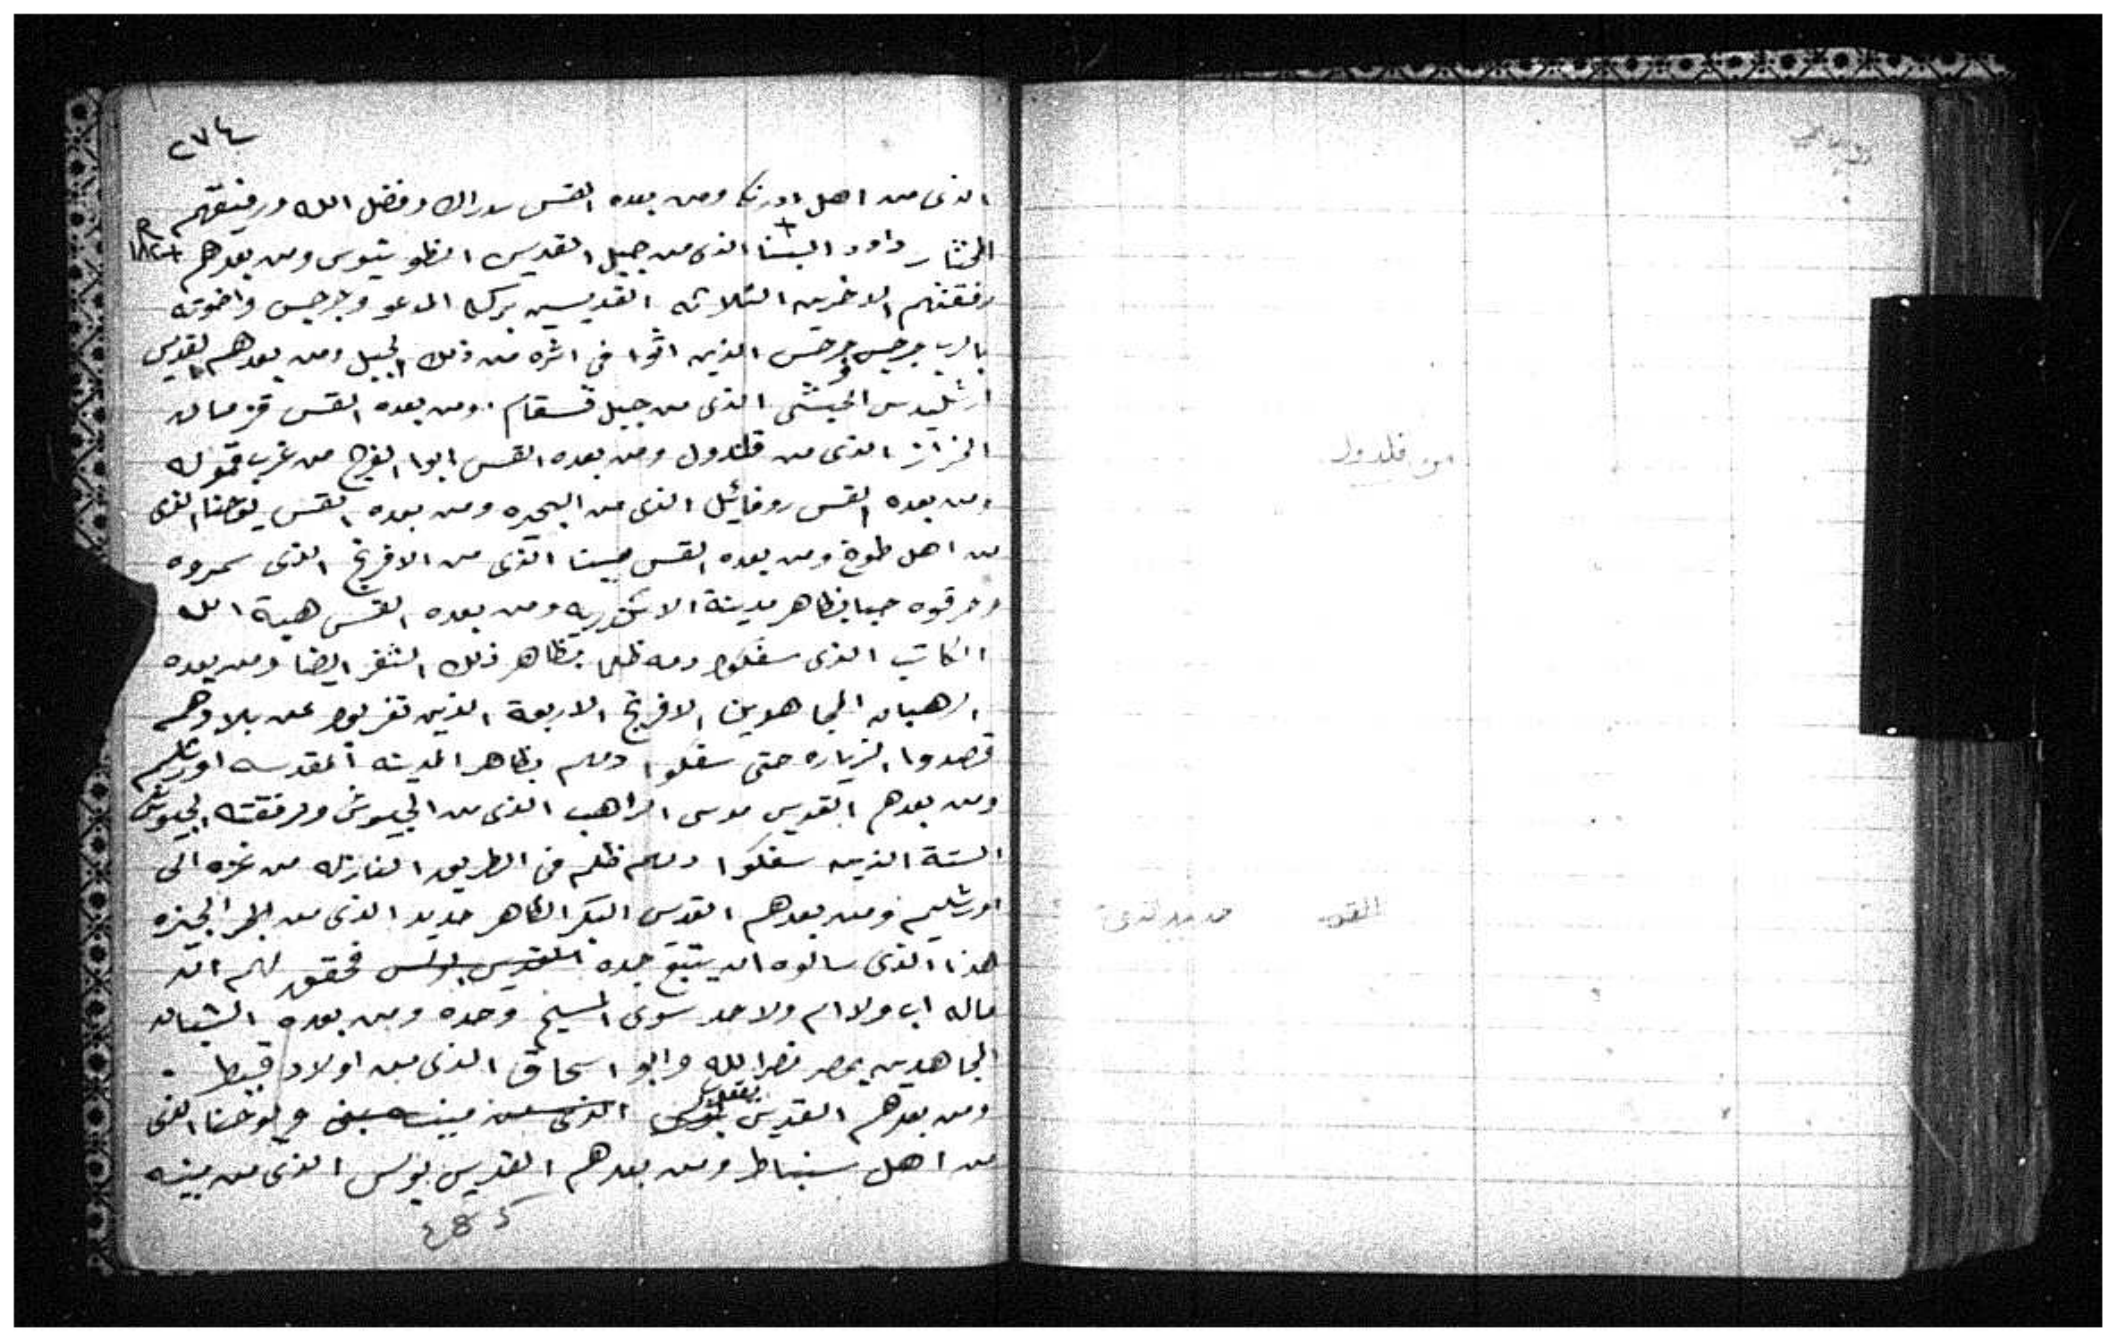 ٢٧٤
الذى من اهل ومن بعده القس سدراك وفضل الله ورفيقهم
المختار داود البنا الذى من جبل القديس انطونيوس ومن بعدهم
رفقتهم الاخرين الثلاثه القديسين المدعو وجرجس واخوته
بالرب جرجس وجرجس الذين اتوا فى اثره من ذلك الجبل ومن بعدهم القديس
ارشليدس الحبشى الذى من جبل قسقام . ومن بعده القس قزمان
الذى من قلندول ومن بعده القس ابوا الفرج من غرب قموله
ومن بعده القس روفائيل الذى من البحيره ومن بعده القس يوحنا الذى
من اهل طوخ ومن بعده القس مينا الذى من الافرنج الذى سمروه
وحرقوه حيا بظاهر مدينة الاسكندريه ومن بعده القس هبة الله
الكاتب الذى سفكوا دمه ظلما بظاهر ذلك الثغر ايضا ومن بعده
الرهبان المجاهدين الافرنج الاربعة الذين تغربوا عن بلادهم
قصدوا الزياره حتى سفكوا دمهم بظاهر المدينه المقدسه اورشليم
ومن بعدهم القديس موسى الراهب الذى من الحبوش ورفقته الحبوش
الستة الذين سفكوا دمهم ظلم فى الطريق من غزه الى
اورشليم ومن بعدهم القديس البكر الطاهر حديد الذى من الجيزه
هذا الذى سالوه ان يتبع جده القديس بولس فحقق لهم ان
ماله اب ولا ام ولا حد سوى المسيح وحده ومن بعده الشبان
المجاهدين بمصر نصر الله وابو اسحاق الذى من اولاد قبط
ومن بعدهم القديس يعقوب الذى من مينه ويوحنا الذى
من اهل سنباط ومن بعدهم القديس بولس الذى من مينه
من قلندول